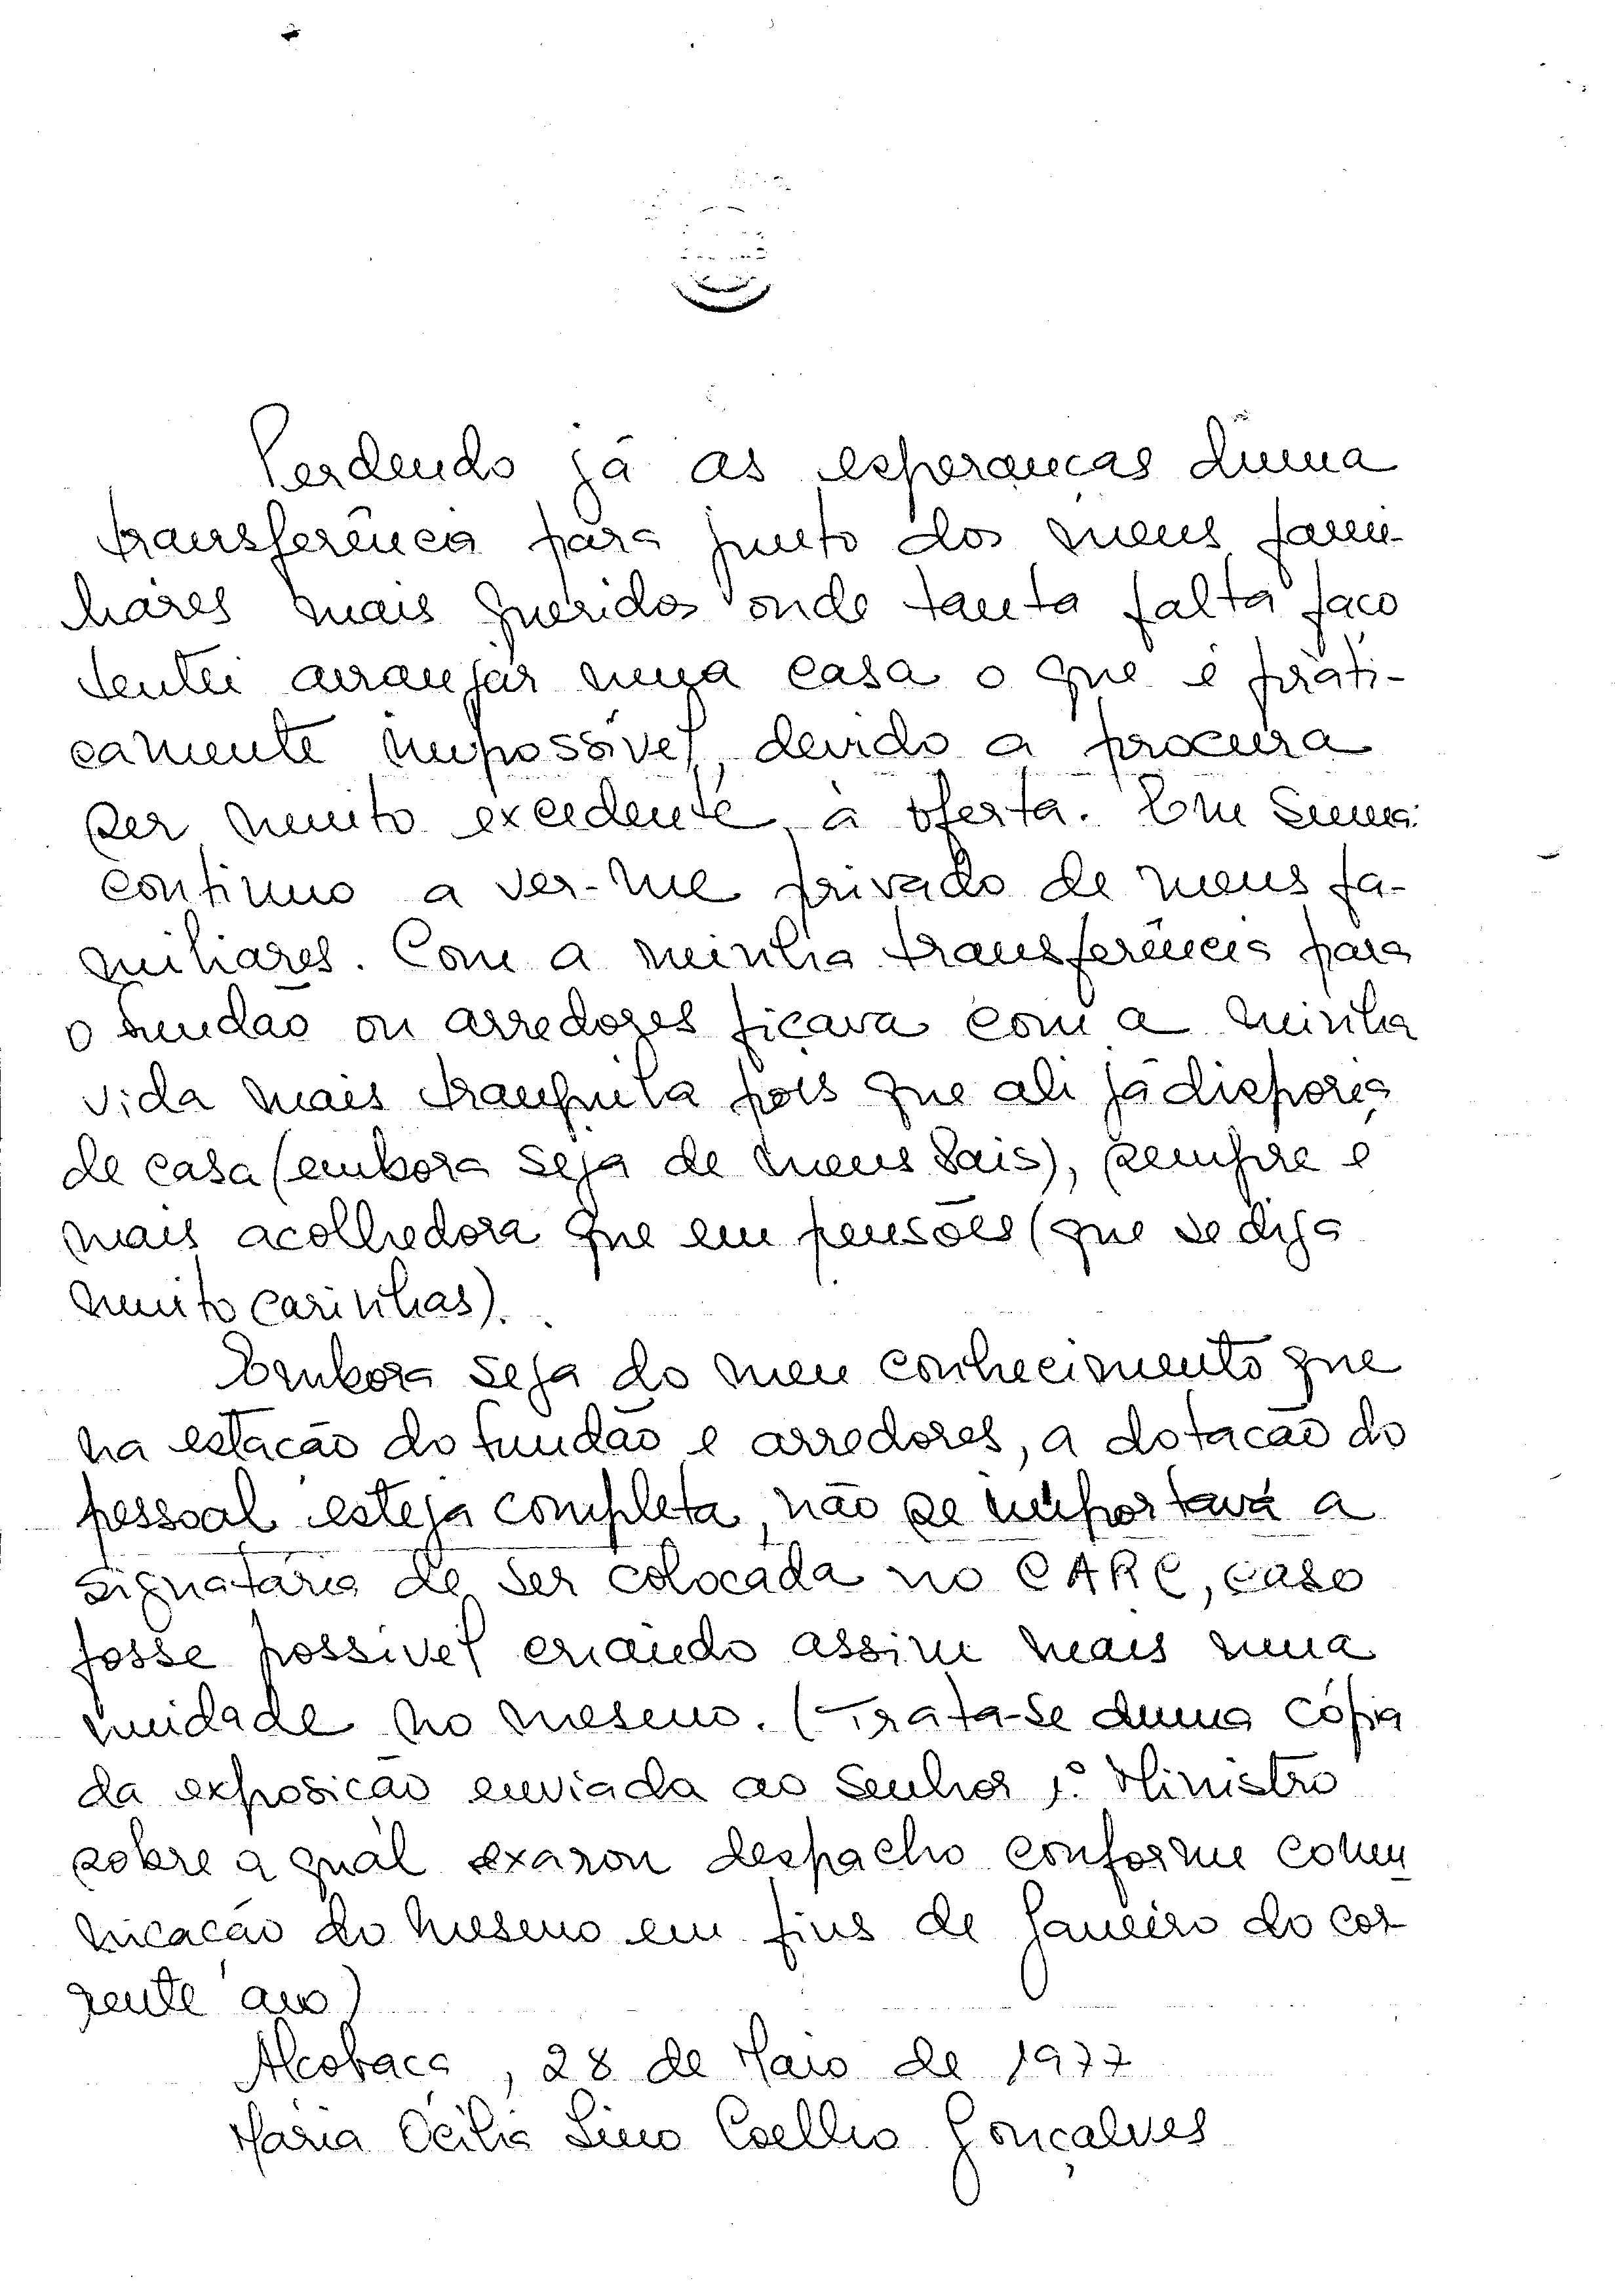 Perdendo já as esperanças duma
transferência para junto dos meus fami-
liares mais queridos onde tanta falta faço
tentei arranjar uma casa o que é práti-
camente impossível, devido a procura
ser muito excedente à oferta. Em suma:
continuo a ver-me privado de meus fa-
miliares. Com a minha transferência para
o Fundão ou arredores ficava com a minha
vida mais tranquila pois que ali já disporia
de casa (embora seja de meus Pais), sempre é
mais acolhedora que em pensões (que se diga
muito carinhas).
Embora seja do meu conhecimento que
na estação do Fundão e arredores, a dotação do
pessoal esteja completa, não se importava a
signatária de ser colocada no CARC, caso
fosse possível criando assim mais uma
unidade no mesmo. (Trata-se duma cópia
da exposição enviada ao Senhor 1º Ministro
sobre a quál exarou despacho conforme comu
nicação do mesmo em fins de Janeiro do cor
rente ano)
Alcobaça, 28 de Maio de 1977
Maria Cecília Lino Coelho Gonçalves